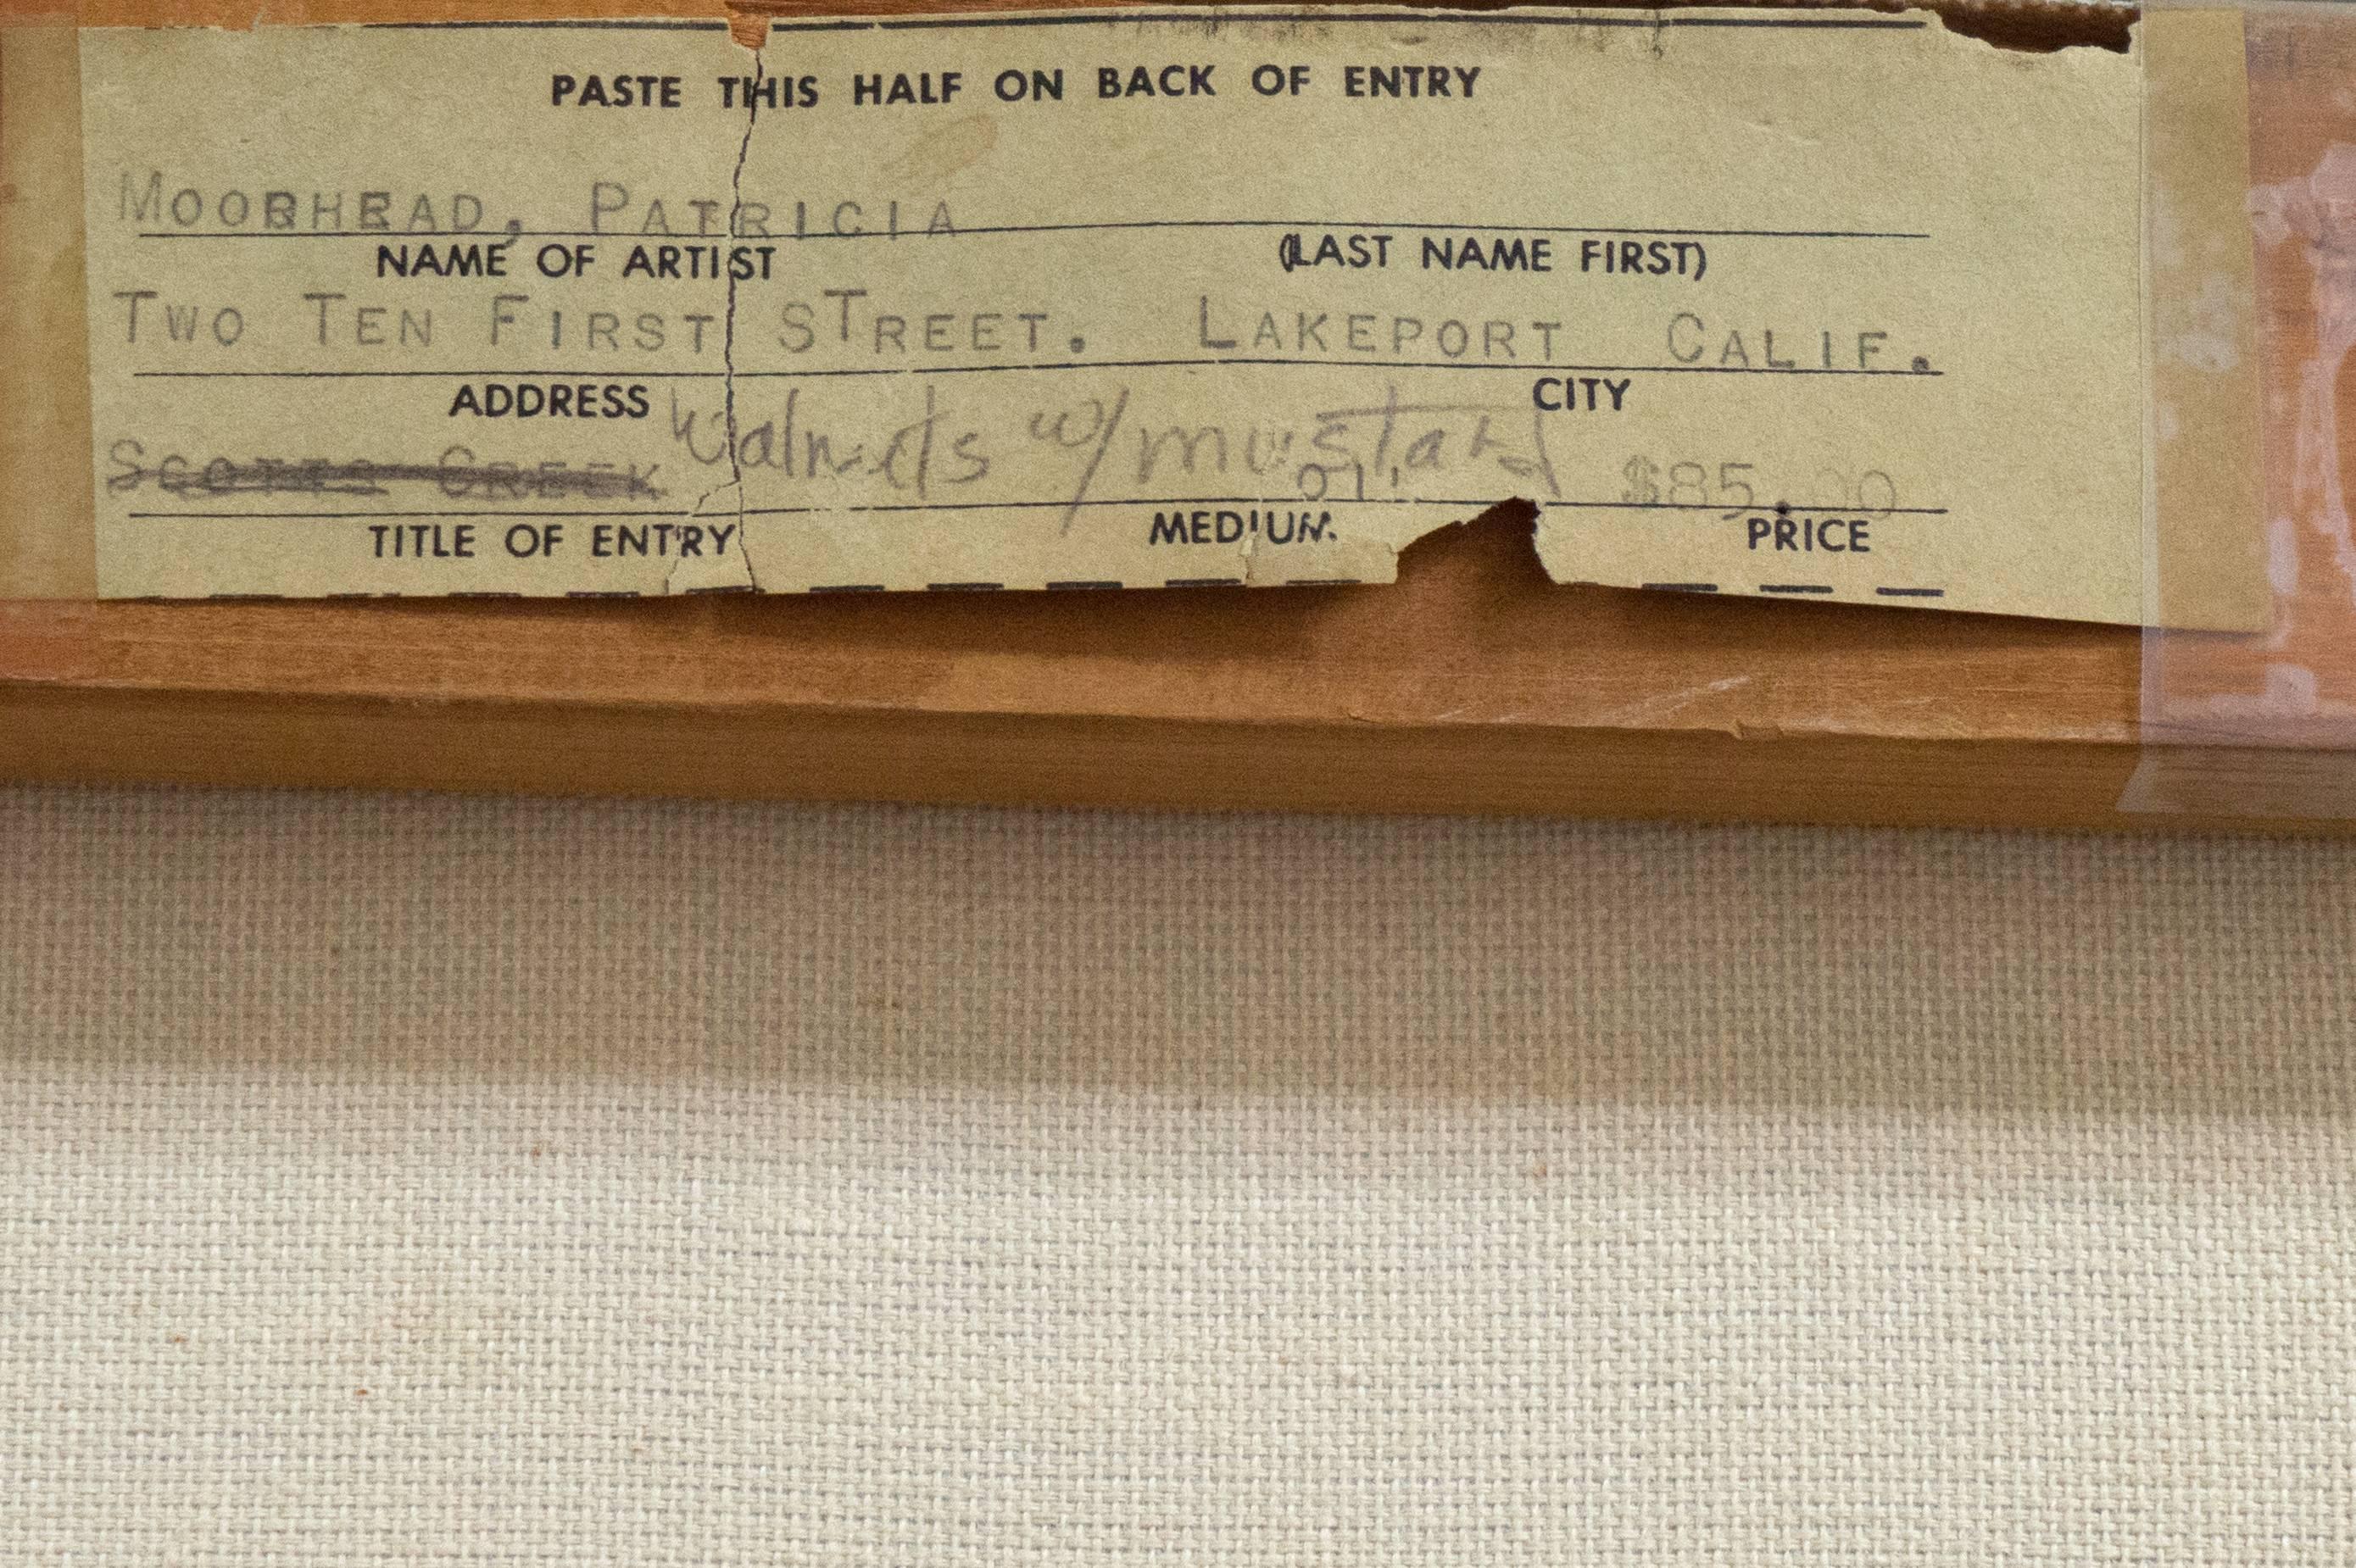 PASTE THIS HALF ON BACK OF ENTRY
MOORHEAD, PATRICIA
NAME OF ARTIST (LAST NAME FIRST)
TWO TEN FIRST STREET. LAKEPORT CALIF.
ADDRESS CITY
SCOTTS CREEK Walnuts w/mustard OIL $85.00
TITLE OF ENTRY MEDIUM. PRICE